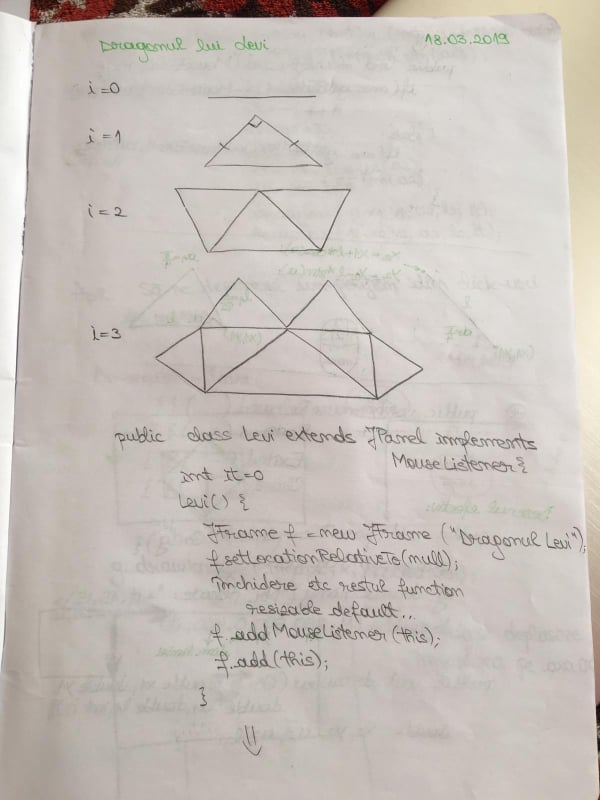 Dragonul lui Levi 18.03.2019
i=0
i=1
i=2
i=3
public class Levi extends JPanel implements
MouseListener {
int it=0
Levi() {
JFrame f =new JFrame ("Dragonul Levi");
f.setLocationRelativeTo(null);
închidere etc restul function
resizable default...
f.addMouseListener(this);
f.add(this);
}